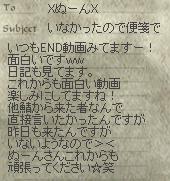 To XぬーんX
Subject いなかったので便箋で
いつもEND動画みてますー！
面白いですww
日記も見てます。
これからも面白い動画
楽しみにしてますね！
他鯖から来た者なんで
直接言いたかったんですが
昨日も来たんですが
いないようなので＞＜
ぬーんさんこれからも
頑張ってください☆笑